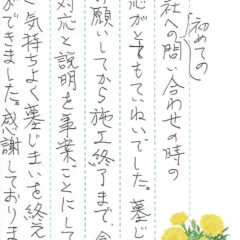 初めての
社への問い合わせの時の
応がとてもていねいでした。墓じ
お願いしてから施工終了まで、
対応と説明を事業ごとにして
気持ちよく墓じまいを終え
ができました。感謝しておりま